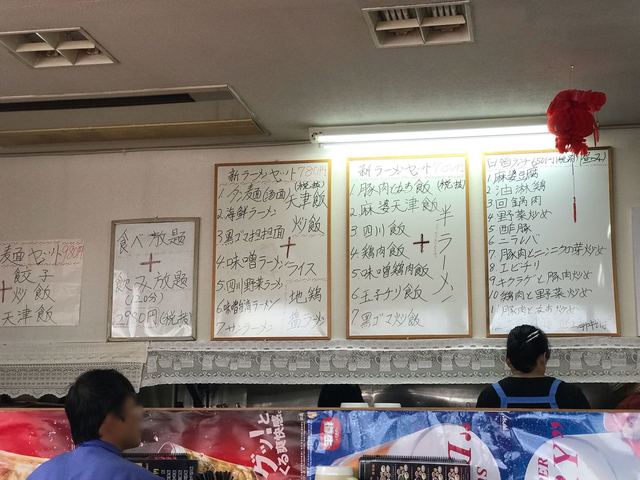 麺セット
餃子
+ 炒飯
天津飯
食べ放題
+
飲み放題
(120分)
2980円(税抜)
新ラーメンセット 780円
(税抜)
1 タン麺(湯面)
2 海鮮ラーメン
3 黒ゴマ担担面
4 味噌ラーメン
5 四川野菜ラーメン
6 味噌ラーメン
7
+
天津飯
炒飯
ライス
地鶏
新ラーメンセット
(税抜)
1 豚肉飯
2 麻婆天津飯
3 四川飯
4 鶏肉飯
5 味噌鶏肉飯
6 玉子チリ飯
7 黒ゴマ炒飯
+
半ラーメン
日替ランチ 650円
1 麻婆豆腐
2 油淋鶏
3 回鍋肉
4 野菜炒め
5 酢豚
6 ニラレバ
7 豚肉とニンニクの芽炒め
8 エビチリ
9 キクラゲと豚肉炒め
10 鶏肉と野菜炒め
グッと
くる爽快感